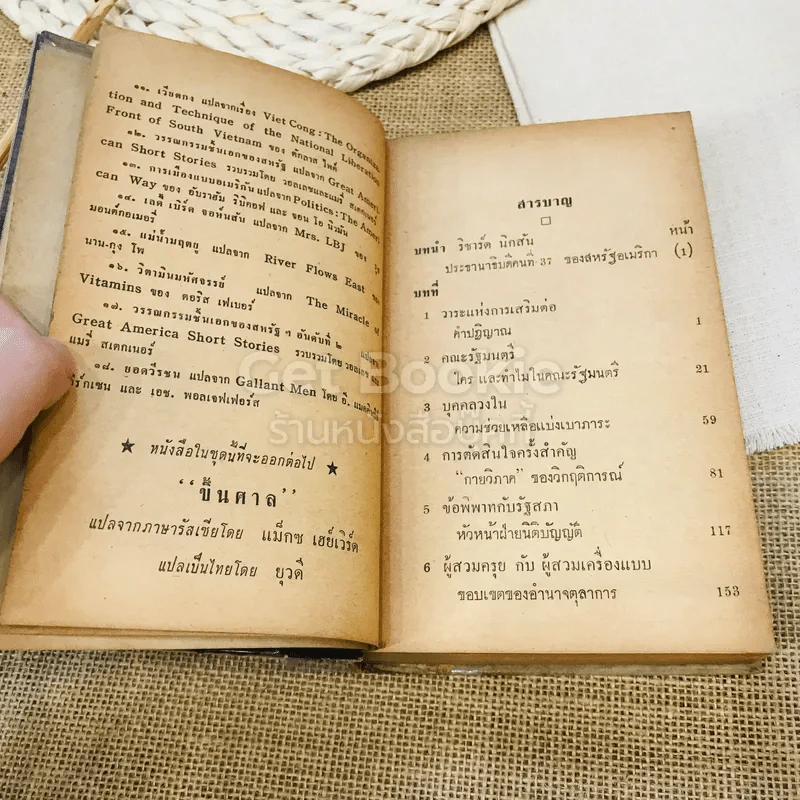 ๑๑. เวียดกง แปลจากเรื่อง Viet Cong : The Organiza-
tion and Technique of the National Liberation
Front of South Vietnam ของ ดักลาส ไพค์
๑๒. วรรณกรรมชั้นเอกของสหรัฐ แปลจาก Great Ameri-
can Short Stories รวบรวมโดย วอลเลซและแมรี่ สเตกเนอร์
๑๓. การเมืองแบบอเมริกัน แปลจาก Politics : The Ameri-
can Way ของ อับราฮัม ริบิคอฟ และ จอน โอ นิวมัน
๑๔. เลดี้ เบิร์ด จอห์นสัน แปลจาก Mrs. LBJ ของ
มอนต์กอเมอรี่
๑๕. แม่น้ำมฤตยู แปลจาก River Flows East ของ
นาน-กุง โพ
๑๖. วิตามินมหัศจรรย์ แปลจาก The Miracle of
Vitamins ของ ดอริส เฟเบอร์
๑๗. วรรณกรรมชั้นเอกของสหรัฐ ฯ อันดับที่ ๒
Great America Short Stories รวบรวมโดย วอลเลซ
แมรี่ สเตกเนอร์
๑๘. ยอดวีรชน แปลจาก Gallant Men โดย อี.
เดิร์กเซน และ เอช. พอลเจฟเฟอร์ส
★ หนังสือในชุดนี้ที่จะออกต่อไป ★
“ขึ้นศาล”
แปลจากภาษารัสเซียโดย แม็กซ เฮย์เวิร์ด
แปลเป็นไทยโดย ยุวดี
สารบาญ
หน้า
บทนำ ริชาร์ด นิกสัน
ประธานาธิบดีคนที่ 37 ของสหรัฐอเมริกา (1)
บทที่
1 วาระแห่งการเสริมต่อ
คำปฏิญาณ 1
2 คณะรัฐมนตรี
ใคร และทำไมในคณะรัฐมนตรี 21
3 บุคคลวงใน
ความช่วยเหลือแบ่งเบาภาระ 59
4 การตัดสินใจครั้งสำคัญ
“กายวิภาค” ของวิกฤติการณ์ 81
5 ข้อพิพาทกับรัฐสภา
หัวหน้าฝ่ายนิติบัญญัติ 117
6 ผู้สวมครุย กับ ผู้สวมเครื่องแบบ
ขอบเขตของอำนาจตุลาการ 153
Get Bookie
ร้านหนังสือบุ๊กกี้